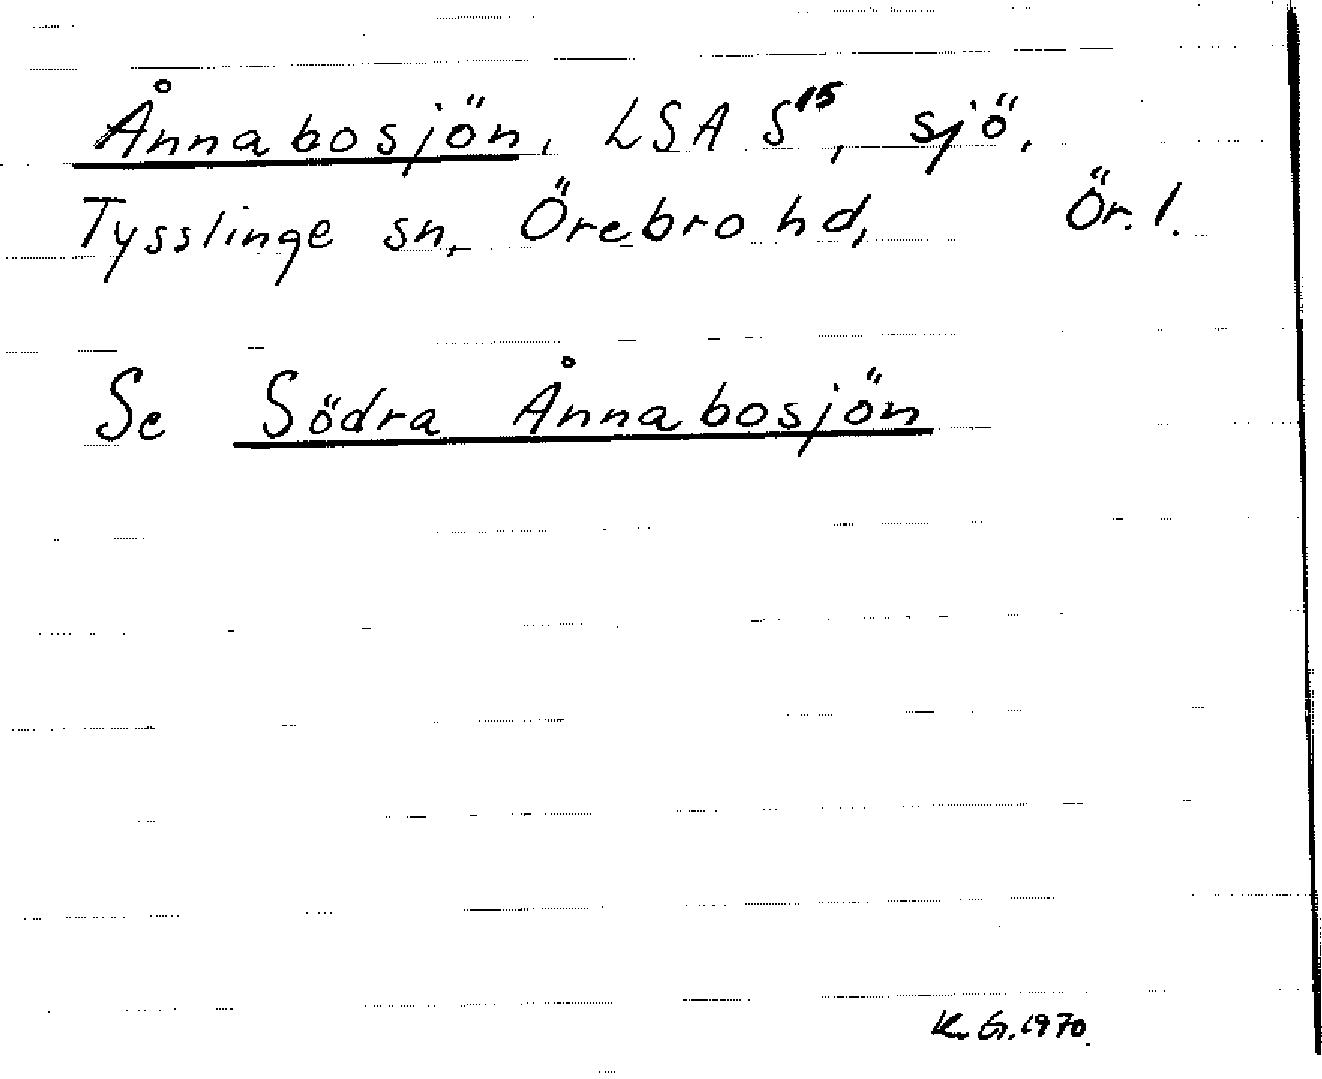 Ånnabosjön, LSA S¹⁵, sjö,
Tysslinge sn, Örebro hd, Ör. l.
Se Södra Ånnabosjön
K. G. 1970.